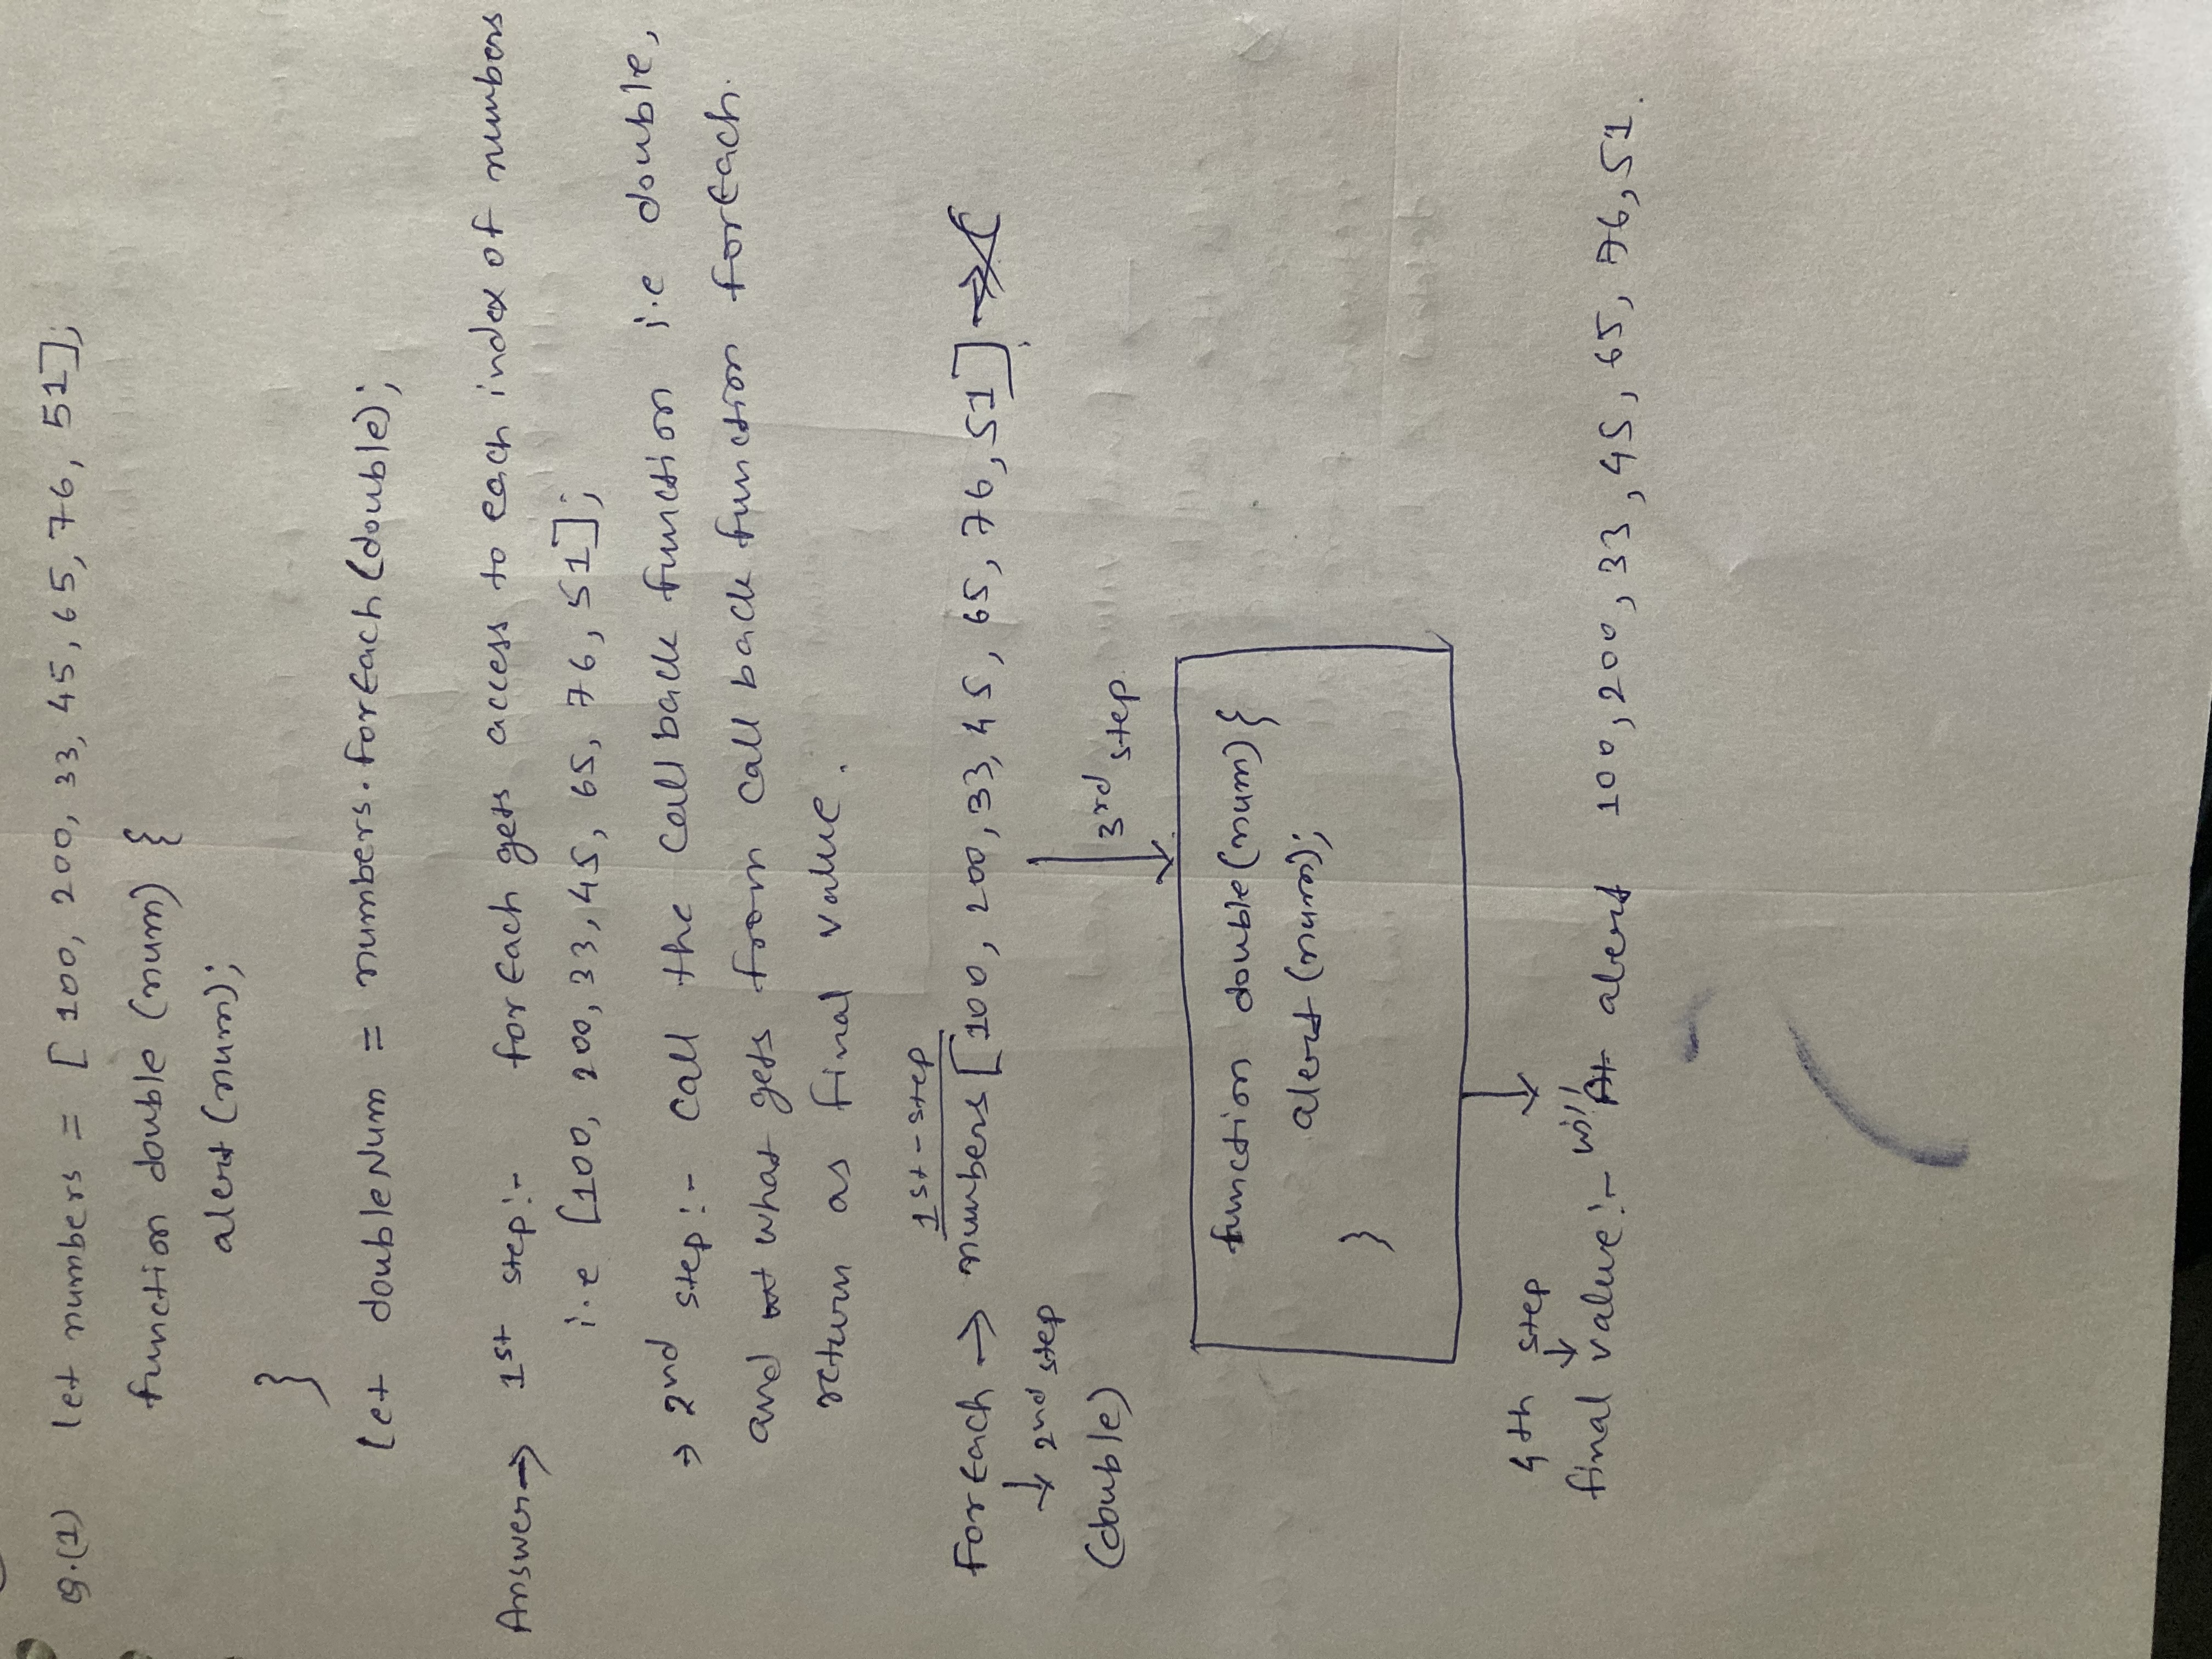 Q.(1) let numbers = [ 100, 200, 33, 45, 65, 76, 51];
function double (num) {
alert (num);
}
let doubleNum = numbers.forEach (double);
Answer→ 1st step:- forEach gets access to each index of numbers
i.e [100, 200, 33, 45, 65, 76, 51];
→ 2nd step:- call the call back function i.e double,
and what gets from call back function forEach.
return as final value.
1st-step
ForEach → numbers [100, 200, 33, 45, 65, 76, 51]
↓ 2nd step
(double)
3rd step.
function double (num) {
alert (num);
}
4th step
↓
final value:- will alert 100, 200, 33, 45, 65, 76, 51.